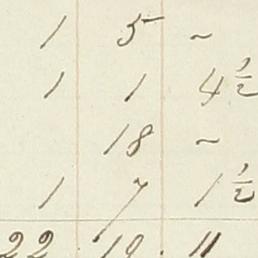 1 5 ~
1 1 4 1/2
18 ~
1 7 1 1/2
22 . 19 . 11